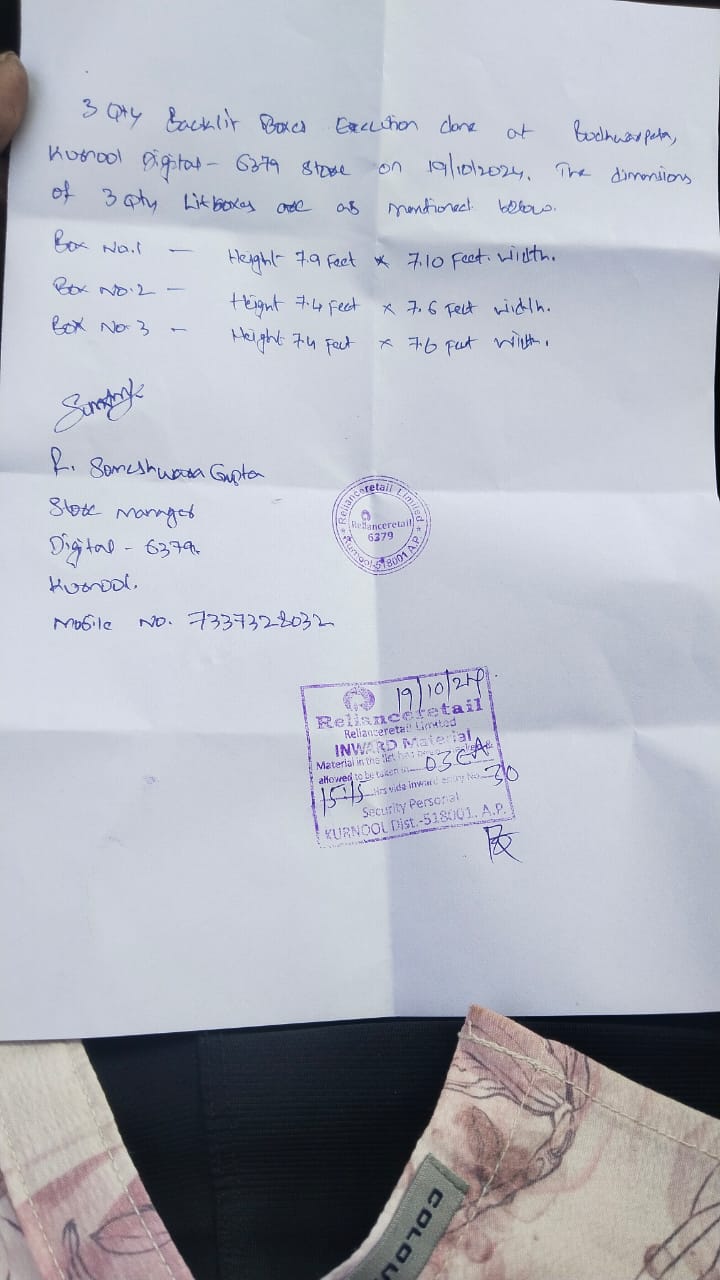 3 Qty Backlit Boxes Execution done at Budhwarpeta,
Kurnool Digital - 6379 Store on 19/10/2024. The dimensions
of 3 Qty Litboxes are as mentioned below.
Box No.1 - Height 7.9 Feet x 7.10 Feet. width.
Box No.2 - Height 7.4 Feet x 7.6 Feet width.
Box No.3 - Height 7.4 Feet x 7.6 Feet width.
R. Someshwara Gupta
Store Manager
Digital - 6379
Kurnool.
Mobile No. 7337328032
Relianceretail Limited
Relianceretail
6379
Kurnool-518001 A.P.
19/10/24
Relianceretail
Relianceretail Limited
INWARD Material
Material in the list has
allowed to be taken in 03 EA
1515 Hrs vide inward entry No. 30
Security Personal
KURNOOL Dist.-518001. A.P.
COLOU